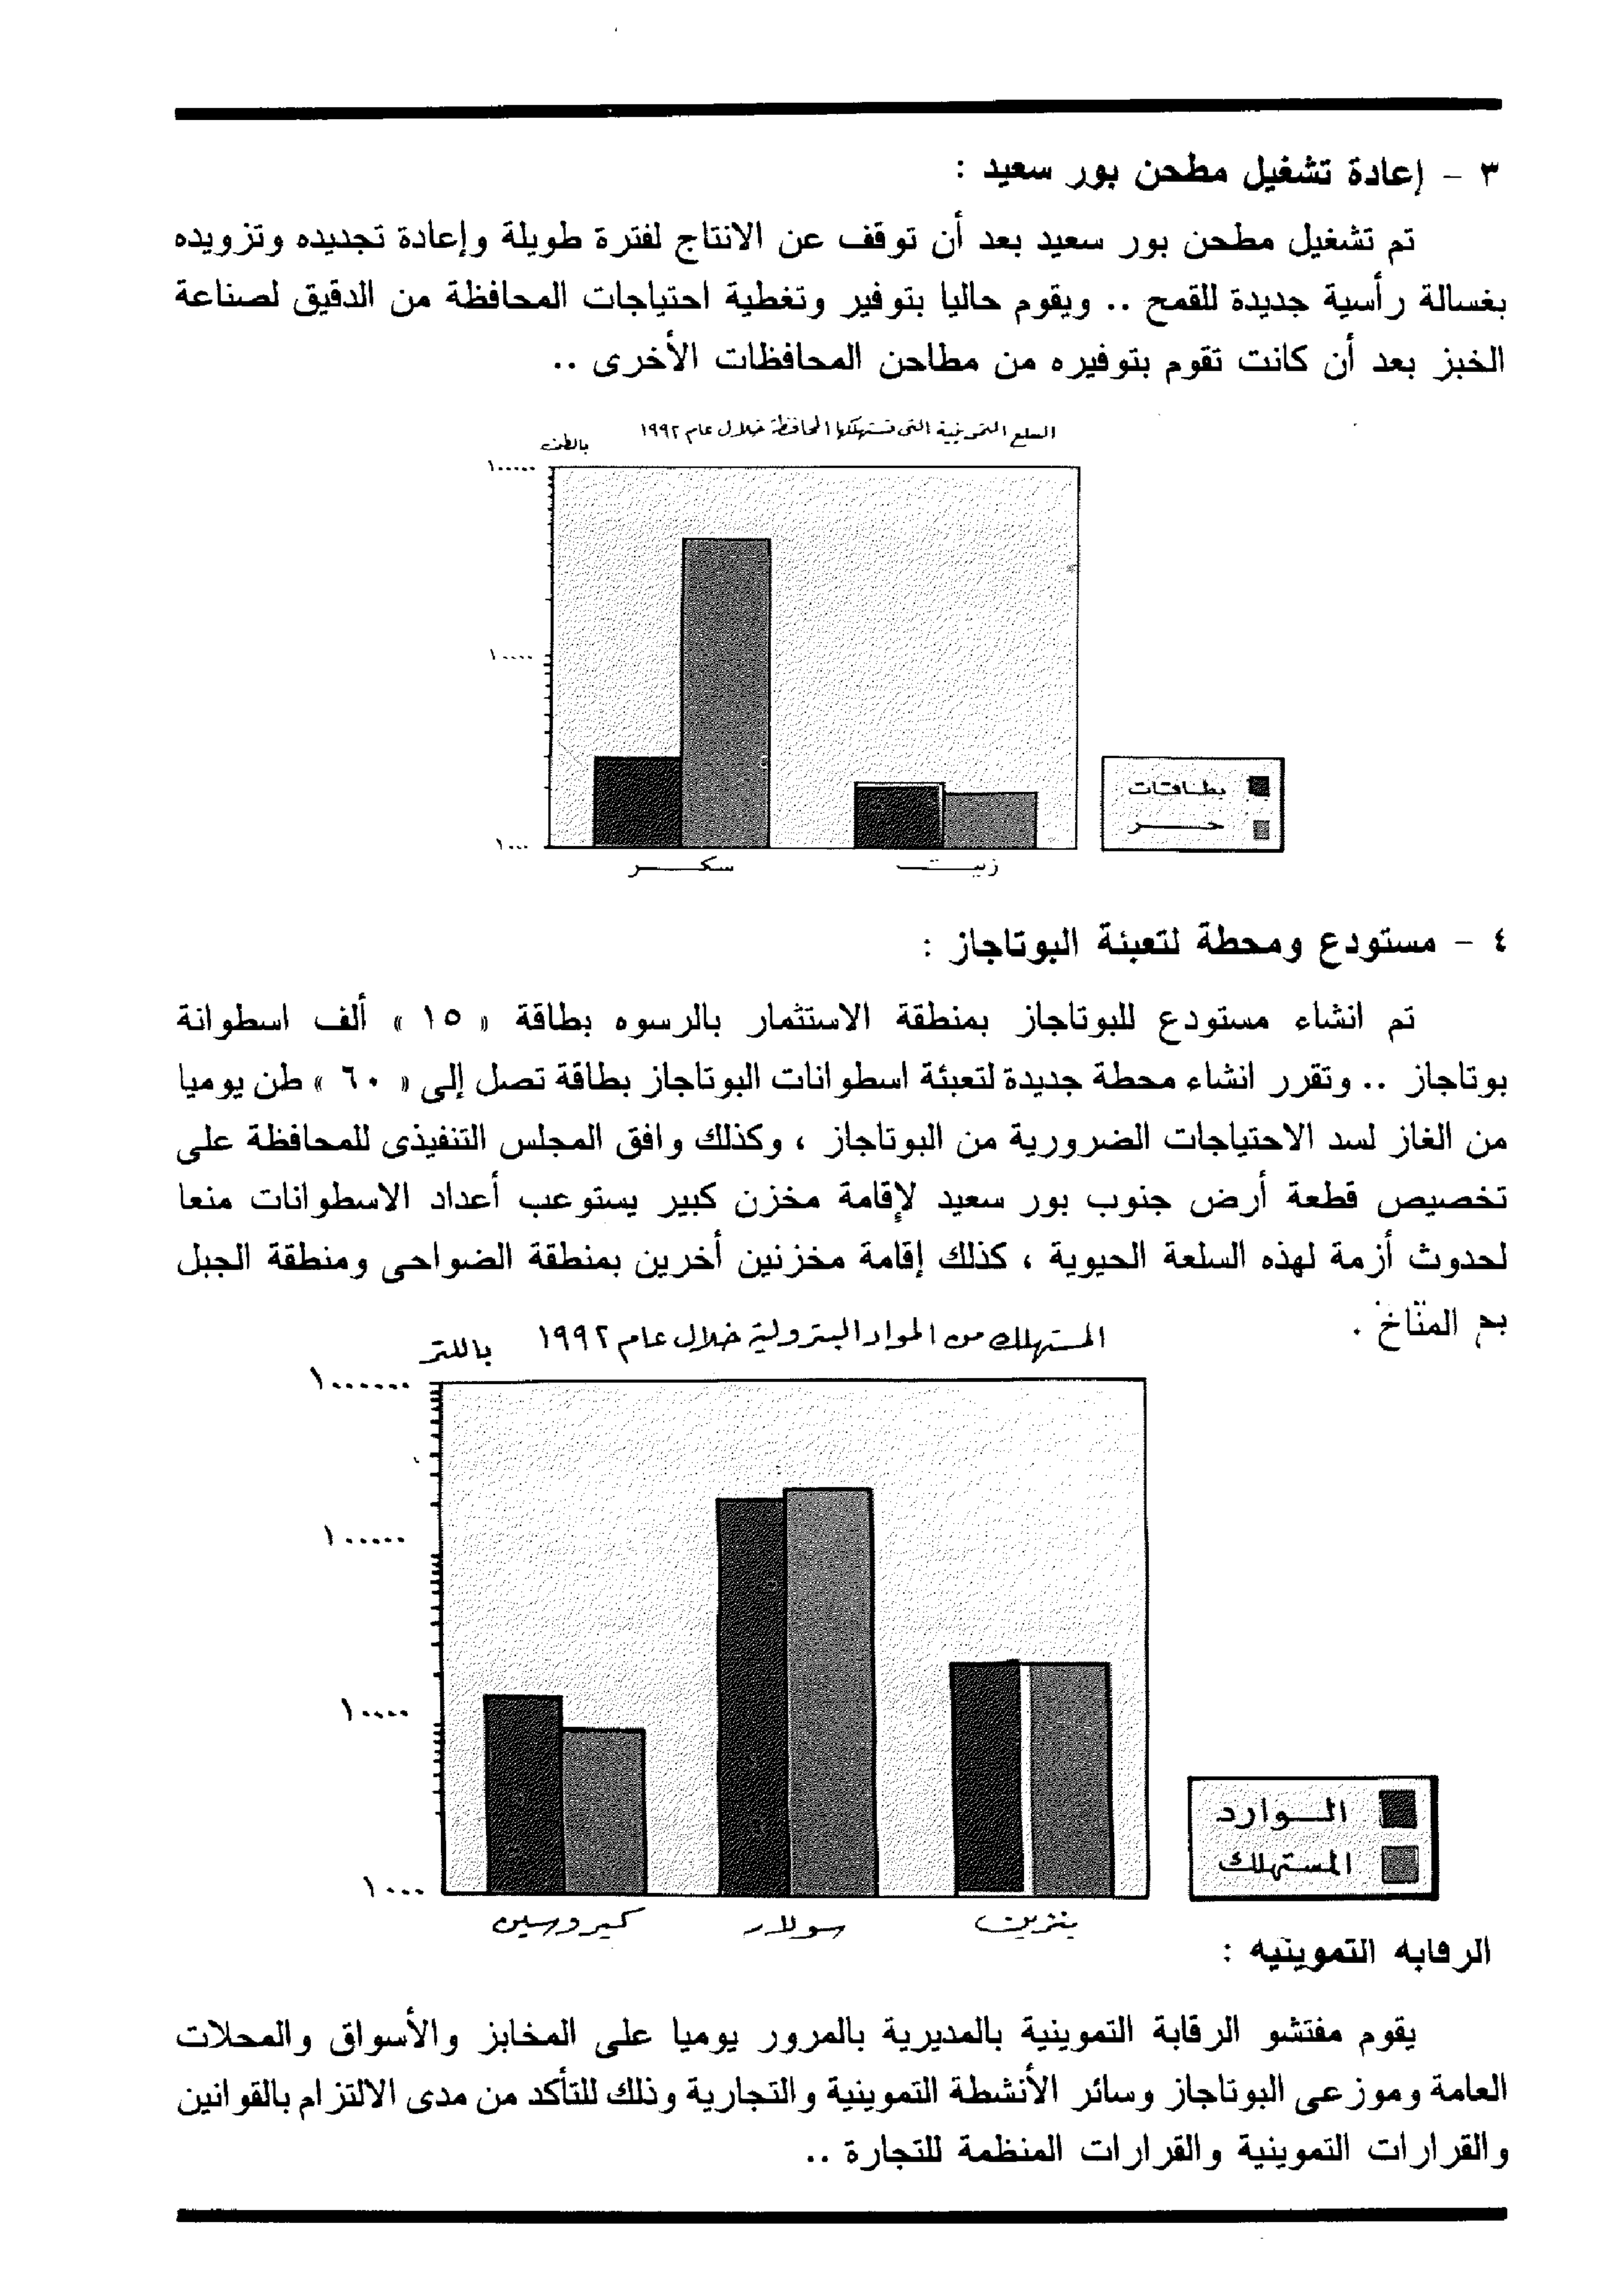 ٣ - إعادة تشغيل مطحن بور سعيد :
تم تشغيل مطحن بور سعيد بعد أن توقف عن الانتاج لفترة طويلة وإعادة تجديده وتزويده
بغسالة رأسية جديدة للقمح .. ويقوم حاليا بتوفير وتغطية احتياجات المحافظة من الدقيق لصناعة
الخبز بعد أن كانت تقوم بتوفيره من مطاحن المحافظات الأخرى ..
السلع التموينية التى تستهلكها المحافظة خلال عام ١٩٩٢
بالطن
١٠٠٠٠٠
١٠٠٠٠
١٠٠٠
بطاقات
حـــر
سكـــر
زيـــت
٤ - مستودع ومحطة لتعبئة البوتاجاز :
تم انشاء مستودع للبوتاجاز بمنطقة الاستثمار بالرسوه بطاقة « ١٥ » ألف اسطوانة
بوتاجاز .. وتقرر انشاء محطة جديدة لتعبئة اسطوانات البوتاجاز بطاقة تصل إلى « ٦٠ » طن يوميا
من الغاز لسد الاحتياجات الضرورية من البوتاجاز ، وكذلك وافق المجلس التنفيذى للمحافظة على
تخصيص قطعة أرض جنوب بور سعيد لإقامة مخزن كبير يستوعب أعداد الاسطوانات منعا
لحدوث أزمة لهذه السلعة الحيوية ، كذلك إقامة مخزنين أخرين بمنطقة الضواحى ومنطقة الجبل
المناخ .
المستهلك من المواد البترولية خلال عام ١٩٩٢
باللتر
١٠٠٠٠٠٠
١٠٠٠٠٠
١٠٠٠٠
١٠٠٠
الـوارد
المستهلك
كيروسين
سولار
بنزين
الرقابه التموينيه :
يقوم مفتشو الرقابة التموينية بالمديرية بالمرور يوميا على المخابز والأسواق والمحلات
العامة وموزعى البوتاجاز وسائر الأنشطة التموينية والتجارية وذلك للتأكد من مدى الالتزام بالقوانين
والقرارات التموينية والقرارات المنظمة للتجارة ..